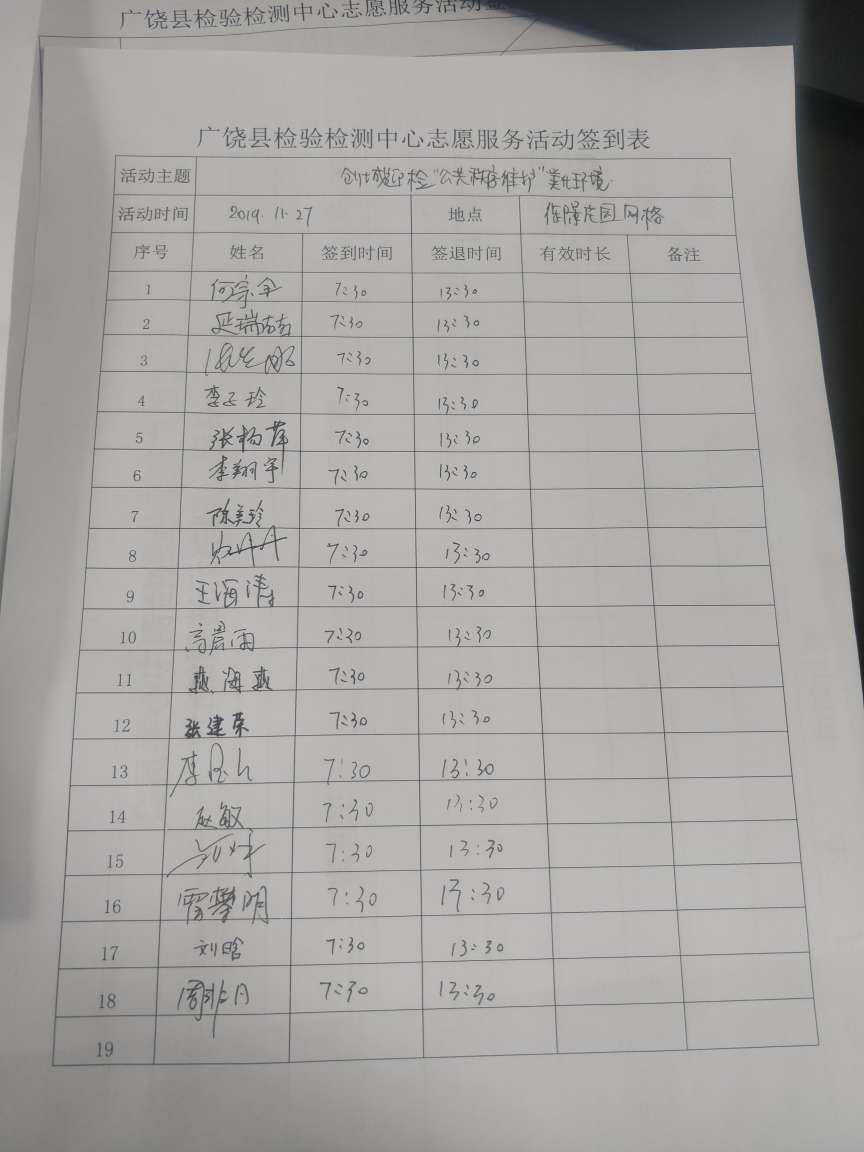 广饶县检验检测中心志愿服务活动签
广饶县检验检测中心志愿服务活动签到表
活动主题 创城迎检“公共秩序维护”美化环境
活动时间 2019.11.27 地点 网格
序号 姓名 签到时间 签退时间 有效时长 备注
1 何宗全 7:30 13:30
2 延瑞 7:30 13:30
3 7:30 13:30
4 李子玲 7:30 13:30
5 张杨萍 7:30 13:30
6 李翔宇 7:30 13:30
7 陈美玲 7:30 13:30
8 7:30 13:30
9 王海清 7:30 13:30
10 高晨雨 7:30 13:30
11 燕海燕 7:30 13:30
12 张建荣 7:30 13:30
13 李 7:30 13:30
14 赵敏 7:30 13:30
15 7:30 13:30
16 雷攀明 7:30 13:30
17 刘晗 7:30 13:30
18 周 7:30 13:30
19